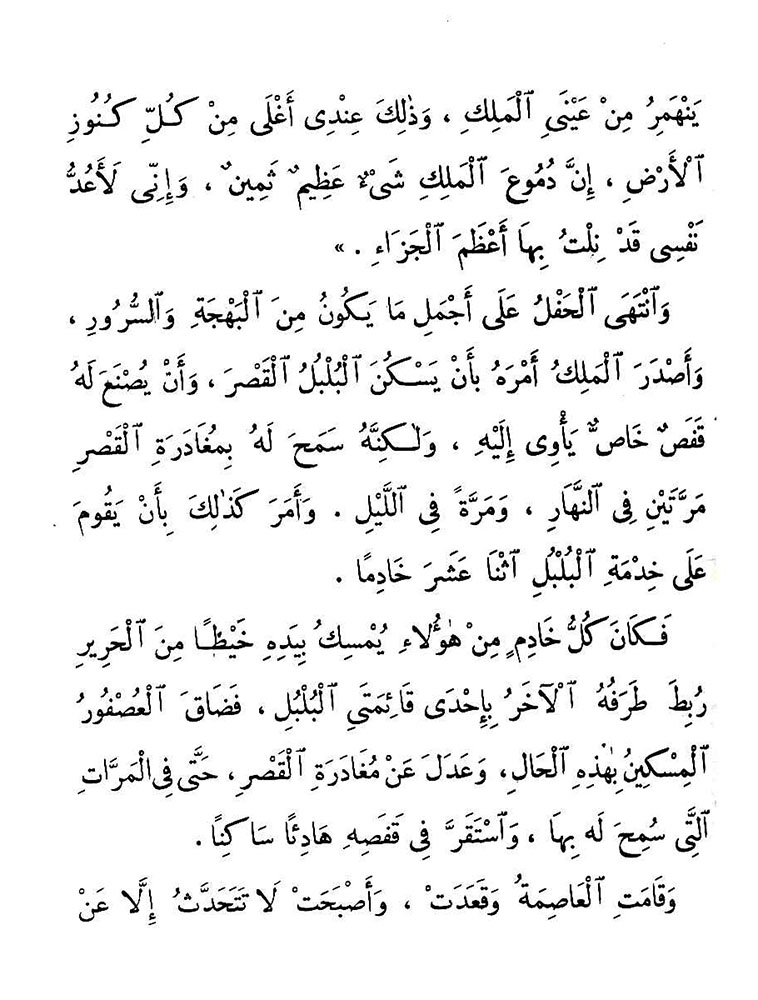 يَنْهَمِرُ مِنْ عَيْنَيِ ٱلْمَلِكِ ، وَذٰلِكَ عِنْدِى أَغْلَى مِنْ كُلِّ كُنُوزِ
ٱلْأَرْضِ ، إِنَّ دُمُوعَ ٱلْمَلِكِ شَىْءٌ عَظِيمٌ ثَمِينٌ ، وَإِنِّى لَأَعُدُّ
نَفْسِى قَدْ نِلْتُ بِهَا أَعْظَمَ ٱلْجَزَاءِ . »
وَٱنْتَهَى ٱلْحَفْلُ عَلَى أَجْمَلِ مَا يَكُونُ مِنَ ٱلْبَهْجَةِ وَٱلسُّرُورِ ،
وَأَصْدَرَ ٱلْمَلِكُ أَمْرَهُ بِأَنْ يَسْكُنَ ٱلْبُلْبُلُ ٱلْقَصْرَ ، وَأَنْ يُصْنَعَ لَهُ
قَفَصٌ خَاصٌّ يَأْوِى إِلَيْهِ ، وَلٰكِنَّهُ سَمَحَ لَهُ بِمُغَادَرَةِ ٱلْقَصْرِ
مَرَّتَيْنِ فِى ٱلنَّهَارِ ، وَمَرَّةً فِى ٱللَّيْلِ . وَأَمَرَ كَذٰلِكَ بِأَنْ يَقُومَ
عَلَى خِدْمَةِ ٱلْبُلْبُلِ ٱثْنَا عَشَرَ خَادِمًا .
فَكَانَ كُلُّ خَادِمٍ مِنْ هٰؤُلَاءِ يُمْسِكُ بِيَدِهِ خَيْطًا مِنَ ٱلْحَرِيرِ
رُبِطَ طَرَفُهُ ٱلْآخَرُ بِإِحْدَى قَائِمَتَىِ ٱلْبُلْبُلِ ، فَضَاقَ ٱلْعُصْفُورُ
ٱلْمِسْكِينُ بِهٰذِهِ ٱلْحَالِ، وَعَدَلَ عَنْ مُغَادَرَةِ ٱلْقَصْرِ ، حَتَّى فِى ٱلْمَرَّاتِ
ٱلَّتِى سُمِحَ لَه بِهَا ، وَٱسْتَقَرَّ فِى قَفَصِهِ هَادِئًا سَاكِنًا .
وَقَامَتِ ٱلْعَاصِمَةُ وَقَعَدَتْ ، وَأَصْبَحَتْ لَا تَتَحَدَّثُ إِلَّا عَنْ